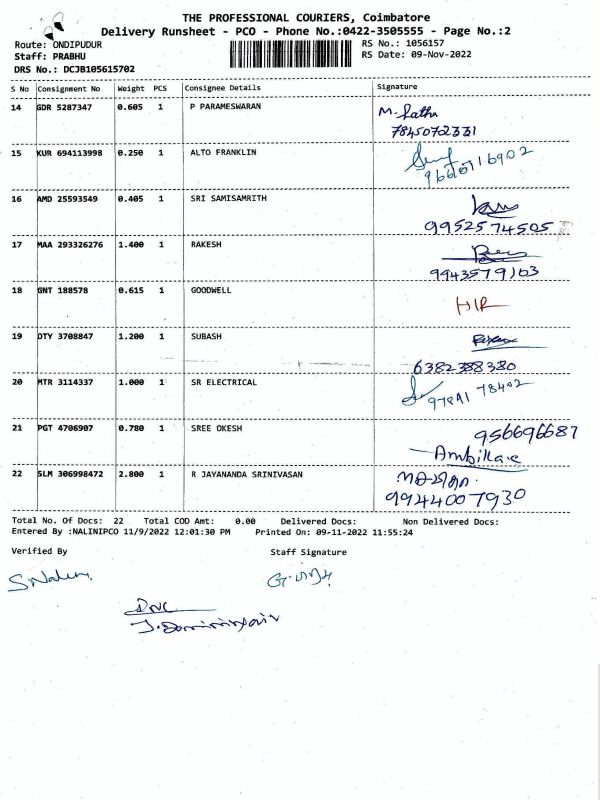 THE PROFESSIONAL COURIERS, Coimbatore
Delivery Runsheet - PCO - Phone No.:0422-3505555 - Page No.:2
Route: ONDIPUDUR RS No.: 1056157
Staff: PRABHU RS Date: 09-Nov-2022
DRS No.: DCJB105615702
S No Consignment No Weight PCS Consignee Details Signature
14 GDR 5287347 0.605 1 P PARAMESWARAN
7845072331
15 KUR 694113998 0.250 1 ALTO FRANKLIN
16 AMD 25593549 0.405 1 SRI SAMISAMRITH
9952574505
17 MAA 293326276 1.400 1 RAKESH
9943579163
18 GNT 188578 0.615 1 GOODWELL HIR
19 DTY 3708847 1.200 1 SUBASH
6382388380
20 MTR 3114337 1.000 1 SR ELECTRICAL
21 PGT 4706907 0.780 1 SREE OKESH
956696687
22 SLM 306998472 2.800 1 R JAYANANDA SRINIVASAN
9944007930
Total No. Of Docs: 22 Total COD Amt: 0.00 Delivered Docs: Non Delivered Docs:
Entered By :NALINIPCO 11/9/2022 12:01:30 PM Printed On: 09-11-2022 11:55:24
Verified By Staff Signature